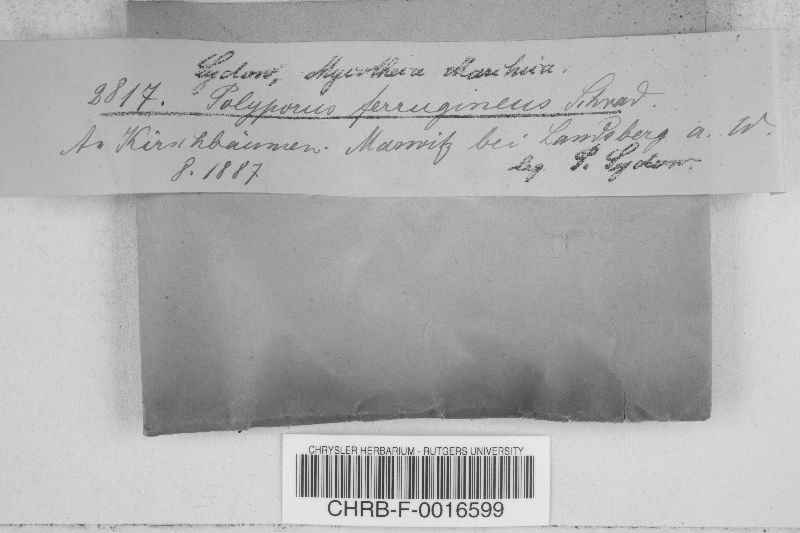 Sydow, Mycotheca Marchica.
2817. Polyporus ferrugineus Schrad.
An Kirschbäumen. Marwitz bei Landsberg a. W.
8. 1887
leg P. Sydow.
CHRYSLER HERBARIUM - RUTGERS UNIVERSITY
CHRB-F-0016599